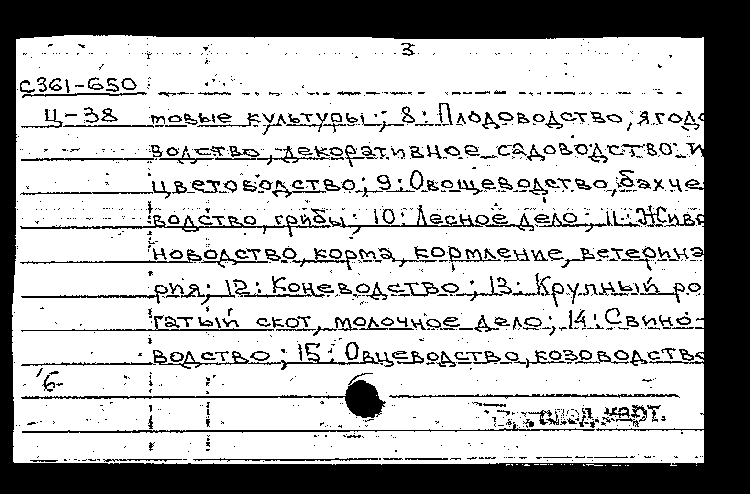 3
С361-650
Ц-38 товые культуры; 8: Плодоводство, ягодо
водство, декоративное садоводство и
цветоводство; 9: Овощеводство, бахче
водство, грибы; 10: Лесное дело; 11: Живо
новодство, корма, кормление, ветерина
рия; 12: Коневодство; 13: Крупный ро
гатый скот, молочное дело; 14: Свино-
водство; 15: Овцеводство, козоводство
карт.